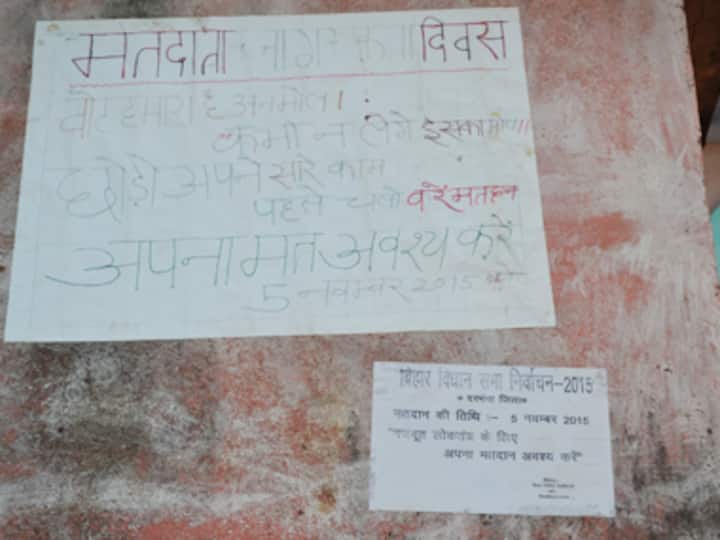 मतदाता जागरूकता दिवस
वोट हमारा है अनमोल।
कभी न लेंगे इसका मोल।।
छोड़ो अपने सारे काम
पहले चलो करें मतदान
अपना मत अवश्य करें
5 नवम्बर 2015 को
बिहार विधान सभा निर्वाचन-2015
दरभंगा जिला
मतदान की तिथि :- 5 नवम्बर 2015
"मजबूत लोकतंत्र के लिए
अपना मतदान अवश्य करें"